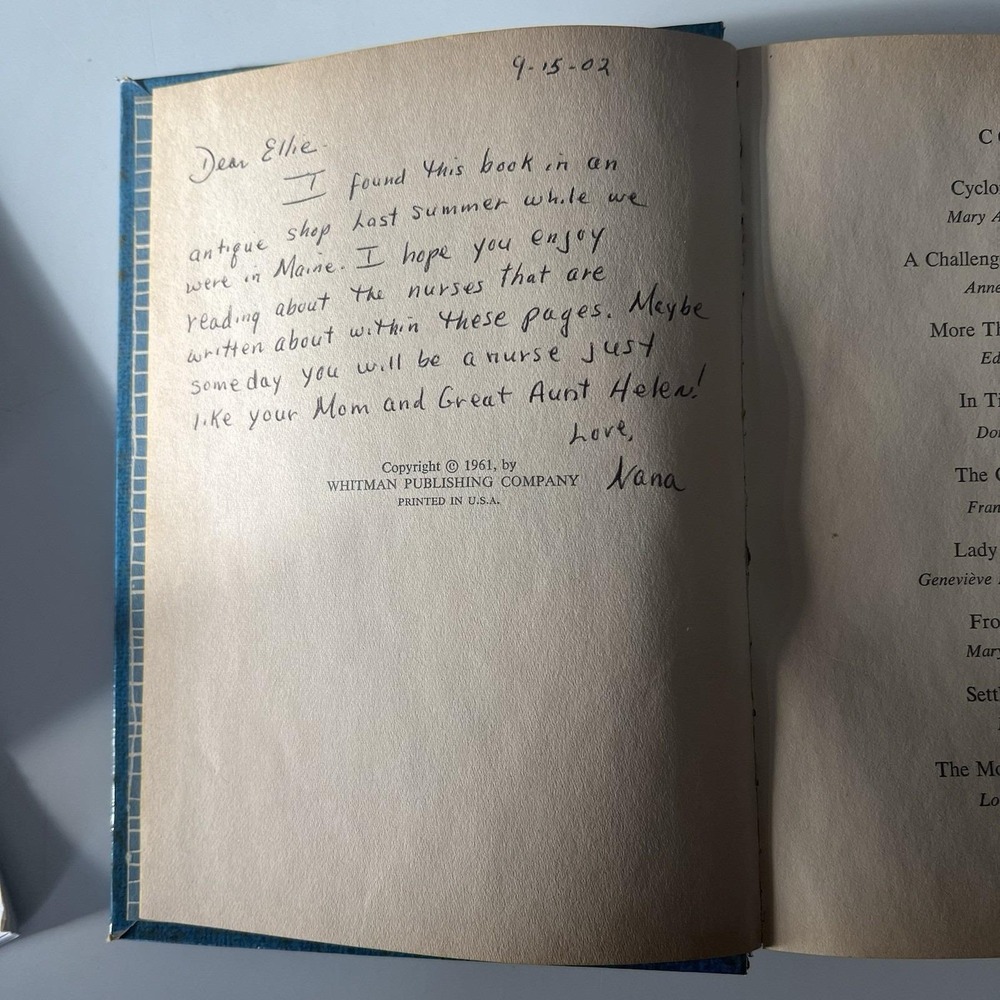 9-15-02
Dear Ellie.
I found this book in an
antique shop last summer while we
were in Maine. I hope you enjoy
reading about the nurses that are
written about within these pages. Maybe
someday you will be a nurse just
like your Mom and Great Aunt Helen!
Love,
Nana
Copyright © 1961, by
WHITMAN PUBLISHING COMPANY
PRINTED IN U.S.A.
Mary
A
Anne
More
In
The
Lady
Geneviève
Mary
The